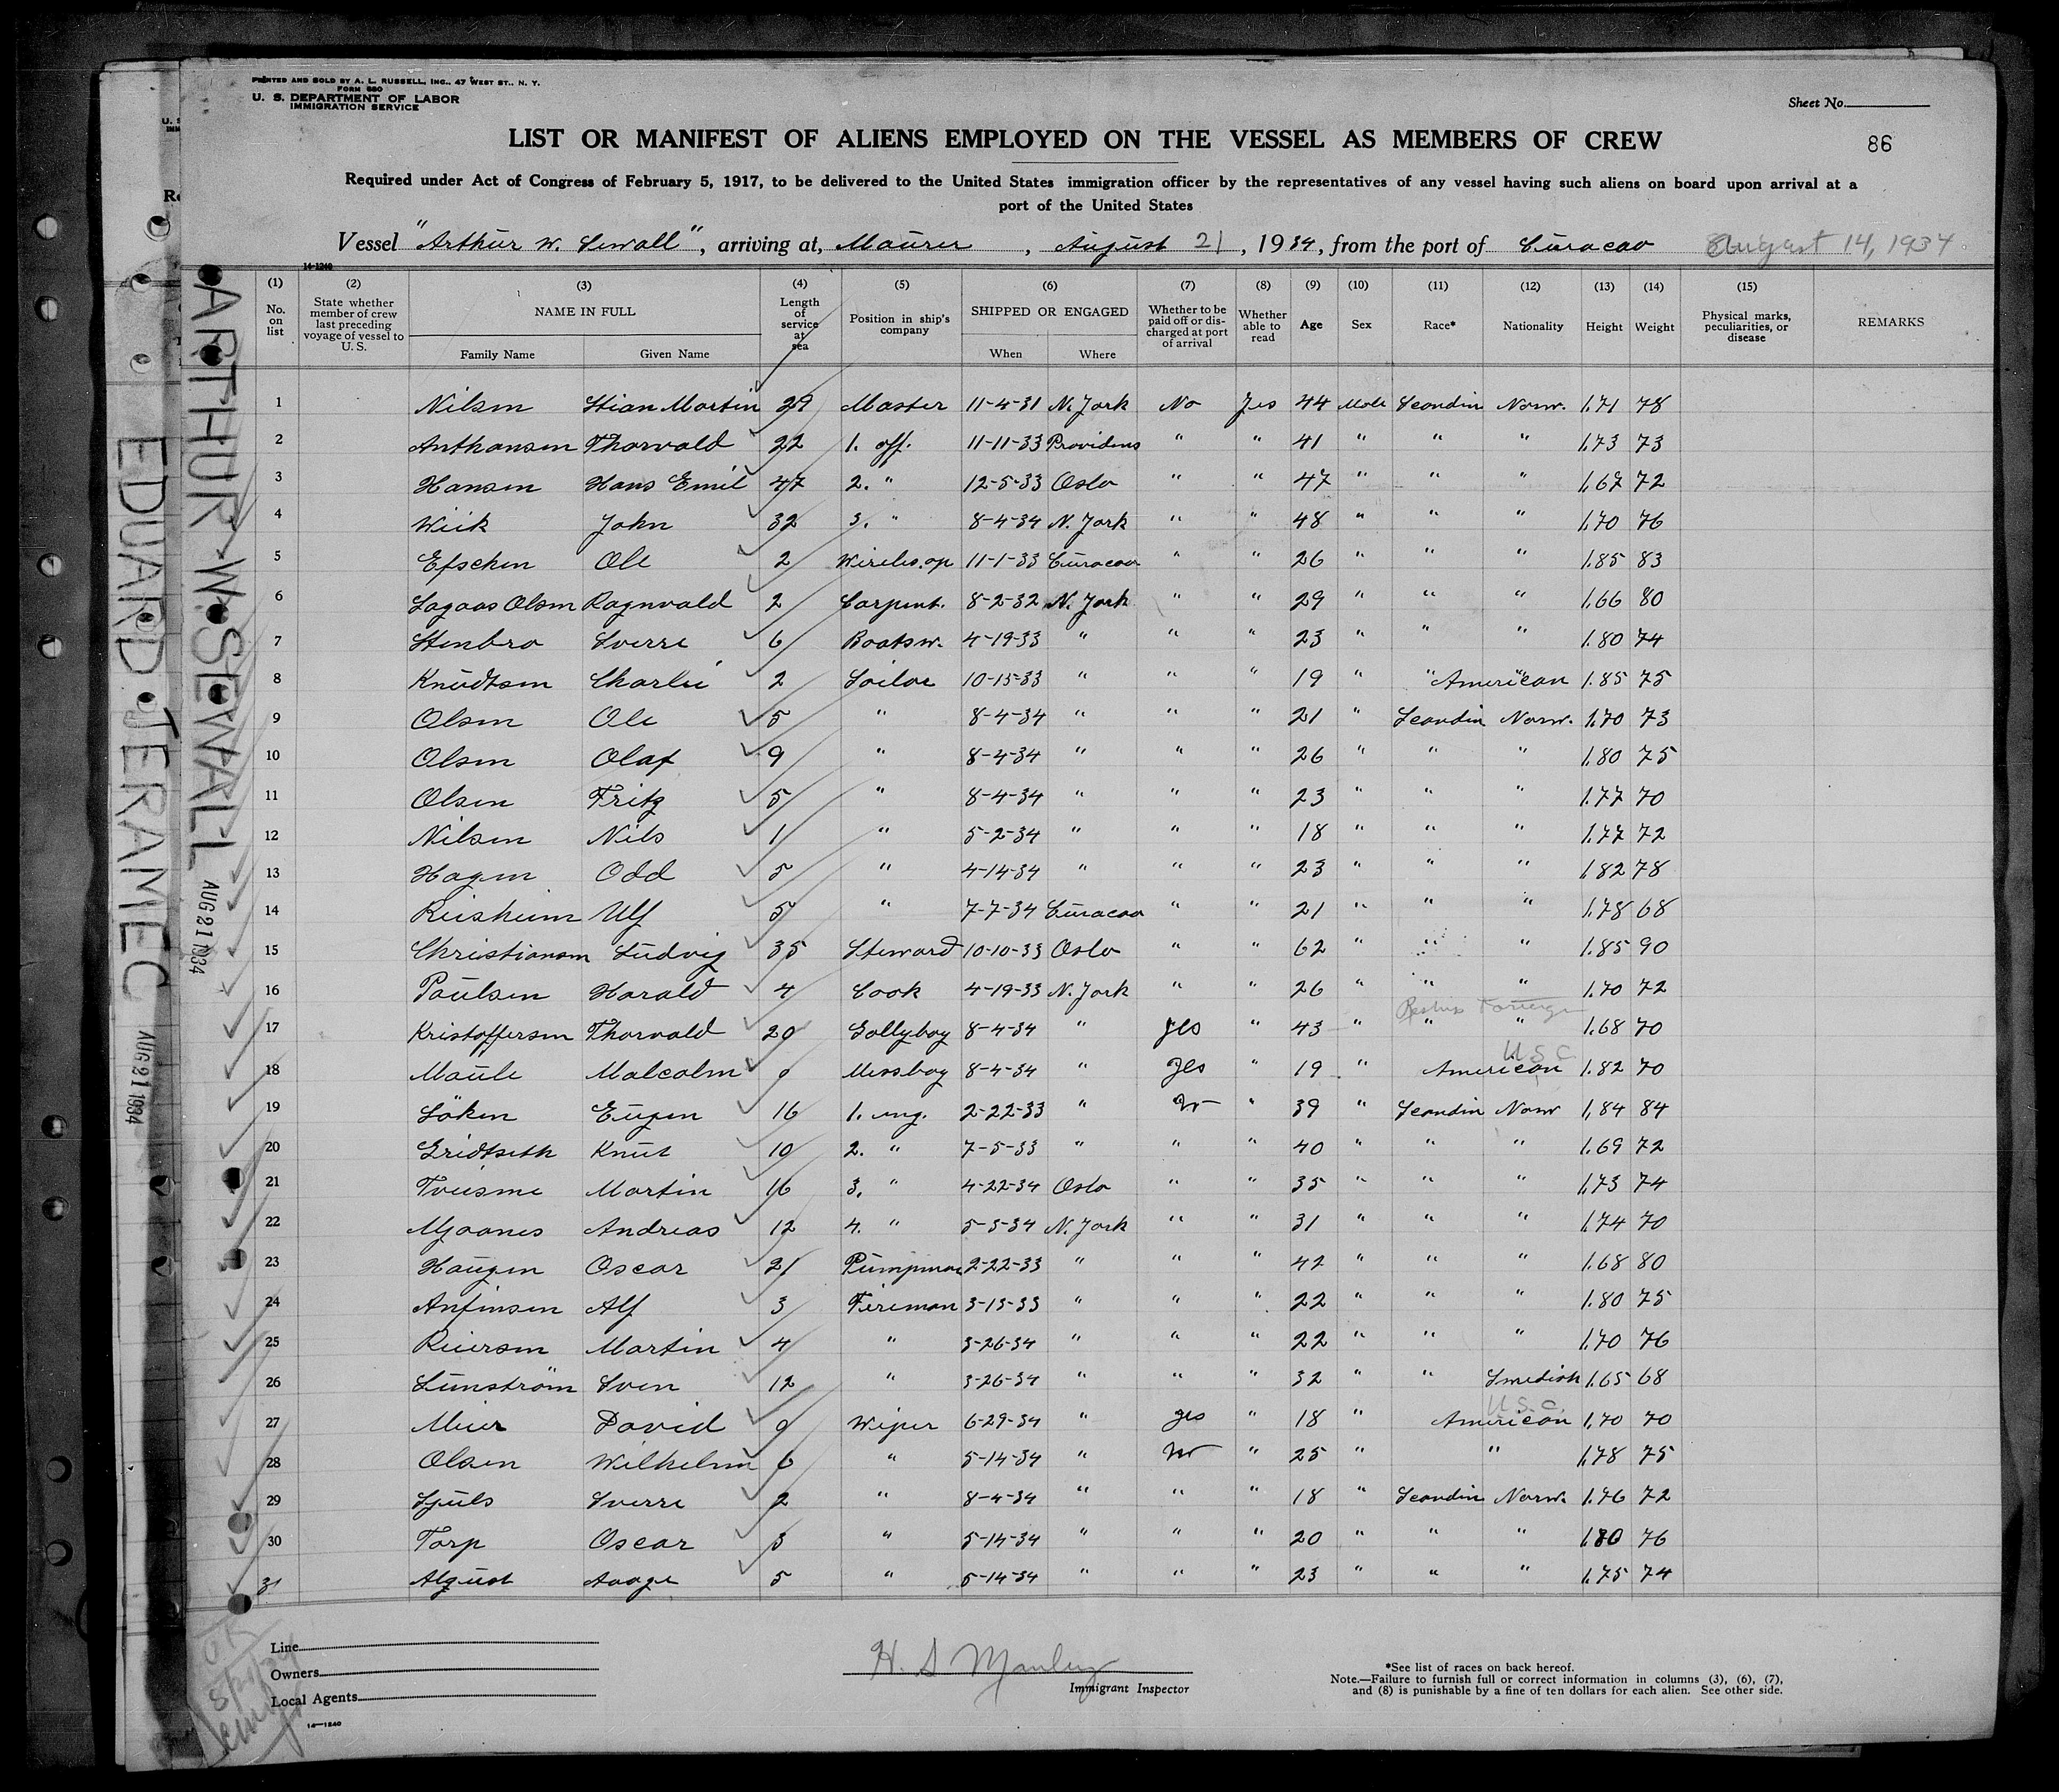 PRINTED AND SOLD BY A. L. RUSSELL, INC., 47 WEST ST., N. Y.
FORM 680
U. S. DEPARTMENT OF LABOR
IMMIGRATION SERVICE
Sheet No.
LIST OR MANIFEST OF ALIENS EMPLOYED ON THE VESSEL AS MEMBERS OF CREW
86
Required under Act of Congress of February 5, 1917, to be delivered to the United States immigration officer by the representatives of any vessel having such aliens on board upon arrival at a
port of the United States
Vessel "Arthur W. Sewall", arriving at, Maurer, August 21, 1934, from the port of Curacao August 14, 1934
14-1240
(1) No. on list (2) State whether member of crew last preceding voyage of vessel to U. S. (3) NAME IN FULL Family Name Given Name (4) Length of service at sea (5) Position in ship's company (6) SHIPPED OR ENGAGED When Where (7) Whether to be paid off or discharged at port of arrival (8) Whether able to read (9) Age (10) Sex (11) Race* (12) Nationality (13) Height (14) Weight (15) Physical marks, peculiarities, or disease REMARKS
1 Nilsen Stian Martin 29 Master 11-4-31 N. York No Yes 44 Male Scandin Norw. 1.71 78
2 Anthonsen Thorvald 22 1. off. 11-11-33 Providens " " 41 " " " 1.73 73
3 Hansen Hans Emil 47 2. " 12-5-33 Oslo " " 47 " " " 1.67 72
4 Wiik John 32 3. " 8-4-34 N. York " " 48 " " " 1.70 76
5 Efschen Ole 2 Wireles. op 11-1-33 Curacao " " 26 " " " 1.85 83
6 Lagaas Olsen Ragnvald 2 Carpent. 8-2-32 N. York " " 29 " " " 1.66 80
7 Stenbro Sverre 6 Boatsw. 4-19-33 " " " 23 " " " 1.80 74
8 Knudtsen Charlie 2 Sailor 10-15-33 " " " 19 " " American 1.85 75
9 Olsen Ole 5 " 8-4-34 " " " 21 " Scandin Norw. 1.70 73
10 Olsen Olaf 9 " 8-4-34 " " " 26 " " " 1.80 75
11 Olsen Fritz 5 " 8-4-34 " " " 23 " " " 1.77 70
12 Nilsen Nils 1 " 5-2-34 " " " 18 " " " 1.77 72
13 Hagen Odd 5 " 4-14-34 " " " 23 " " " 1.82 78
14 Reisheim Ulf 5 " 7-7-34 Curacao " " 21 " " " 1.78 68
15 Christiansen Ludvig 35 Steward 10-10-33 Oslo " " 62 " " " 1.85 90
16 Paulsen Harald 4 Cook 4-19-33 N. York " " 26 " " " 1.70 72
17 Kristoffersen Thorvald 20 Gallyboy 8-4-34 " yes " 43 " " " 1.68 70
18 Maule Malcolm 0 Messboy 8-4-34 " Yes " 19 " American U.S.C. 1.82 70
19 Löken Eugen 16 1. eng. 2-22-33 " No " 39 " Scandin Norw 1.84 84
20 Gridtseth Knut 10 2. " 7-5-33 " " " 40 " " " 1.69 72
21 Tveisme Martin 16 3. " 4-22-34 Oslo " " 35 " " " 1.73 74
22 Mjaanes Andreas 12 4. " 5-3-34 N. York " " 31 " " " 1.74 70
23 Haugen Oscar 21 Pumpman 2-22-33 " " " 42 " " " 1.68 80
24 Anfinsen Alf 3 Fireman 3-13-33 " " " 22 " " " 1.80 75
25 Reiersen Martin 4 " 3-26-34 " " " 22 " " " 1.70 76
26 Lunström Sven 12 " 3-26-34 " " " 32 " " Swedish 1.65 68
27 Meier David 0 Wiper 6-29-34 " yes " 18 " American U.S.C. 1.70 70
28 Olsen Wilhelm 6 " 5-14-34 " No " 25 " " 1.78 75
29 Sjuls Sverre 2 " 8-4-34 " " " 18 " Scandin Norw. 1.76 72
30 Torp Oscar 3 " 5-14-34 " " " 20 " " " 1.80 76
31 Algust Aaage 5 " 5-14-34 " " " 23 " " " 1.75 74
Line
Owners
Local Agents
14—1240
H. S Manley
Immigrant Inspector
*See list of races on back hereof.
Note.—Failure to furnish full or correct information in columns (3), (6), (7),
and (8) is punishable by a fine of ten dollars for each alien. See other side.
ARTHUR W. SEWALL AUG 21 1934
EDUARD JERAMEC AUG 21 1934
OK